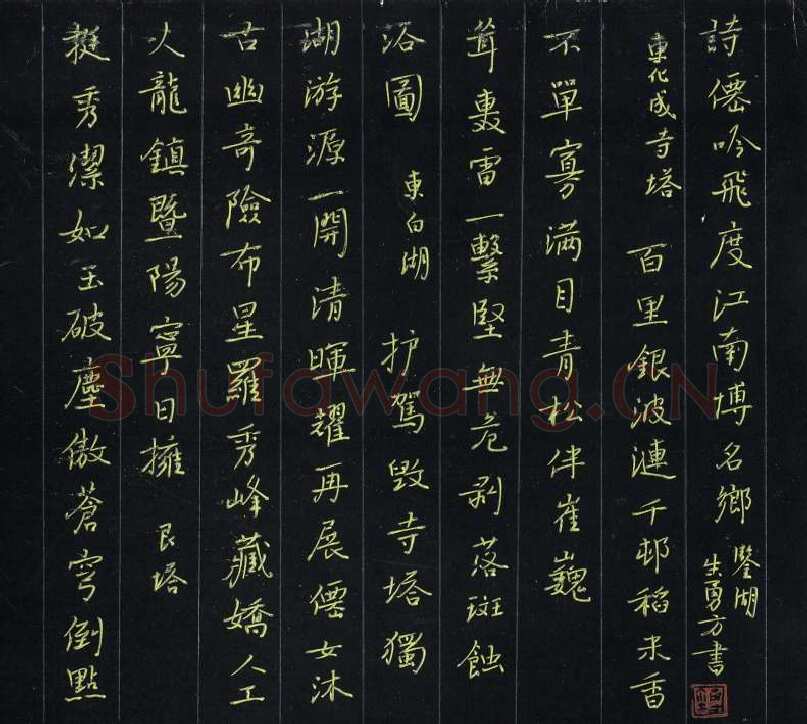 挺秀潔如玉破塵傲蒼穹倒點
火龍鎮暨陽寧日擁 艮塔
古幽奇險布星羅秀峰藏嬌人工
湖游源一開清暉耀再展僊女沐
浴圖 東白湖 护駕毀寺塔獨
聳轟雷一繫堅無危剥落斑蝕
不單寡满目青松伴崔巍
東化成寺塔 百里銀波漣千邨稻米香
詩僊吟飛度江南博名鄉
鑒湖
生勇方書
Shufawang.CN